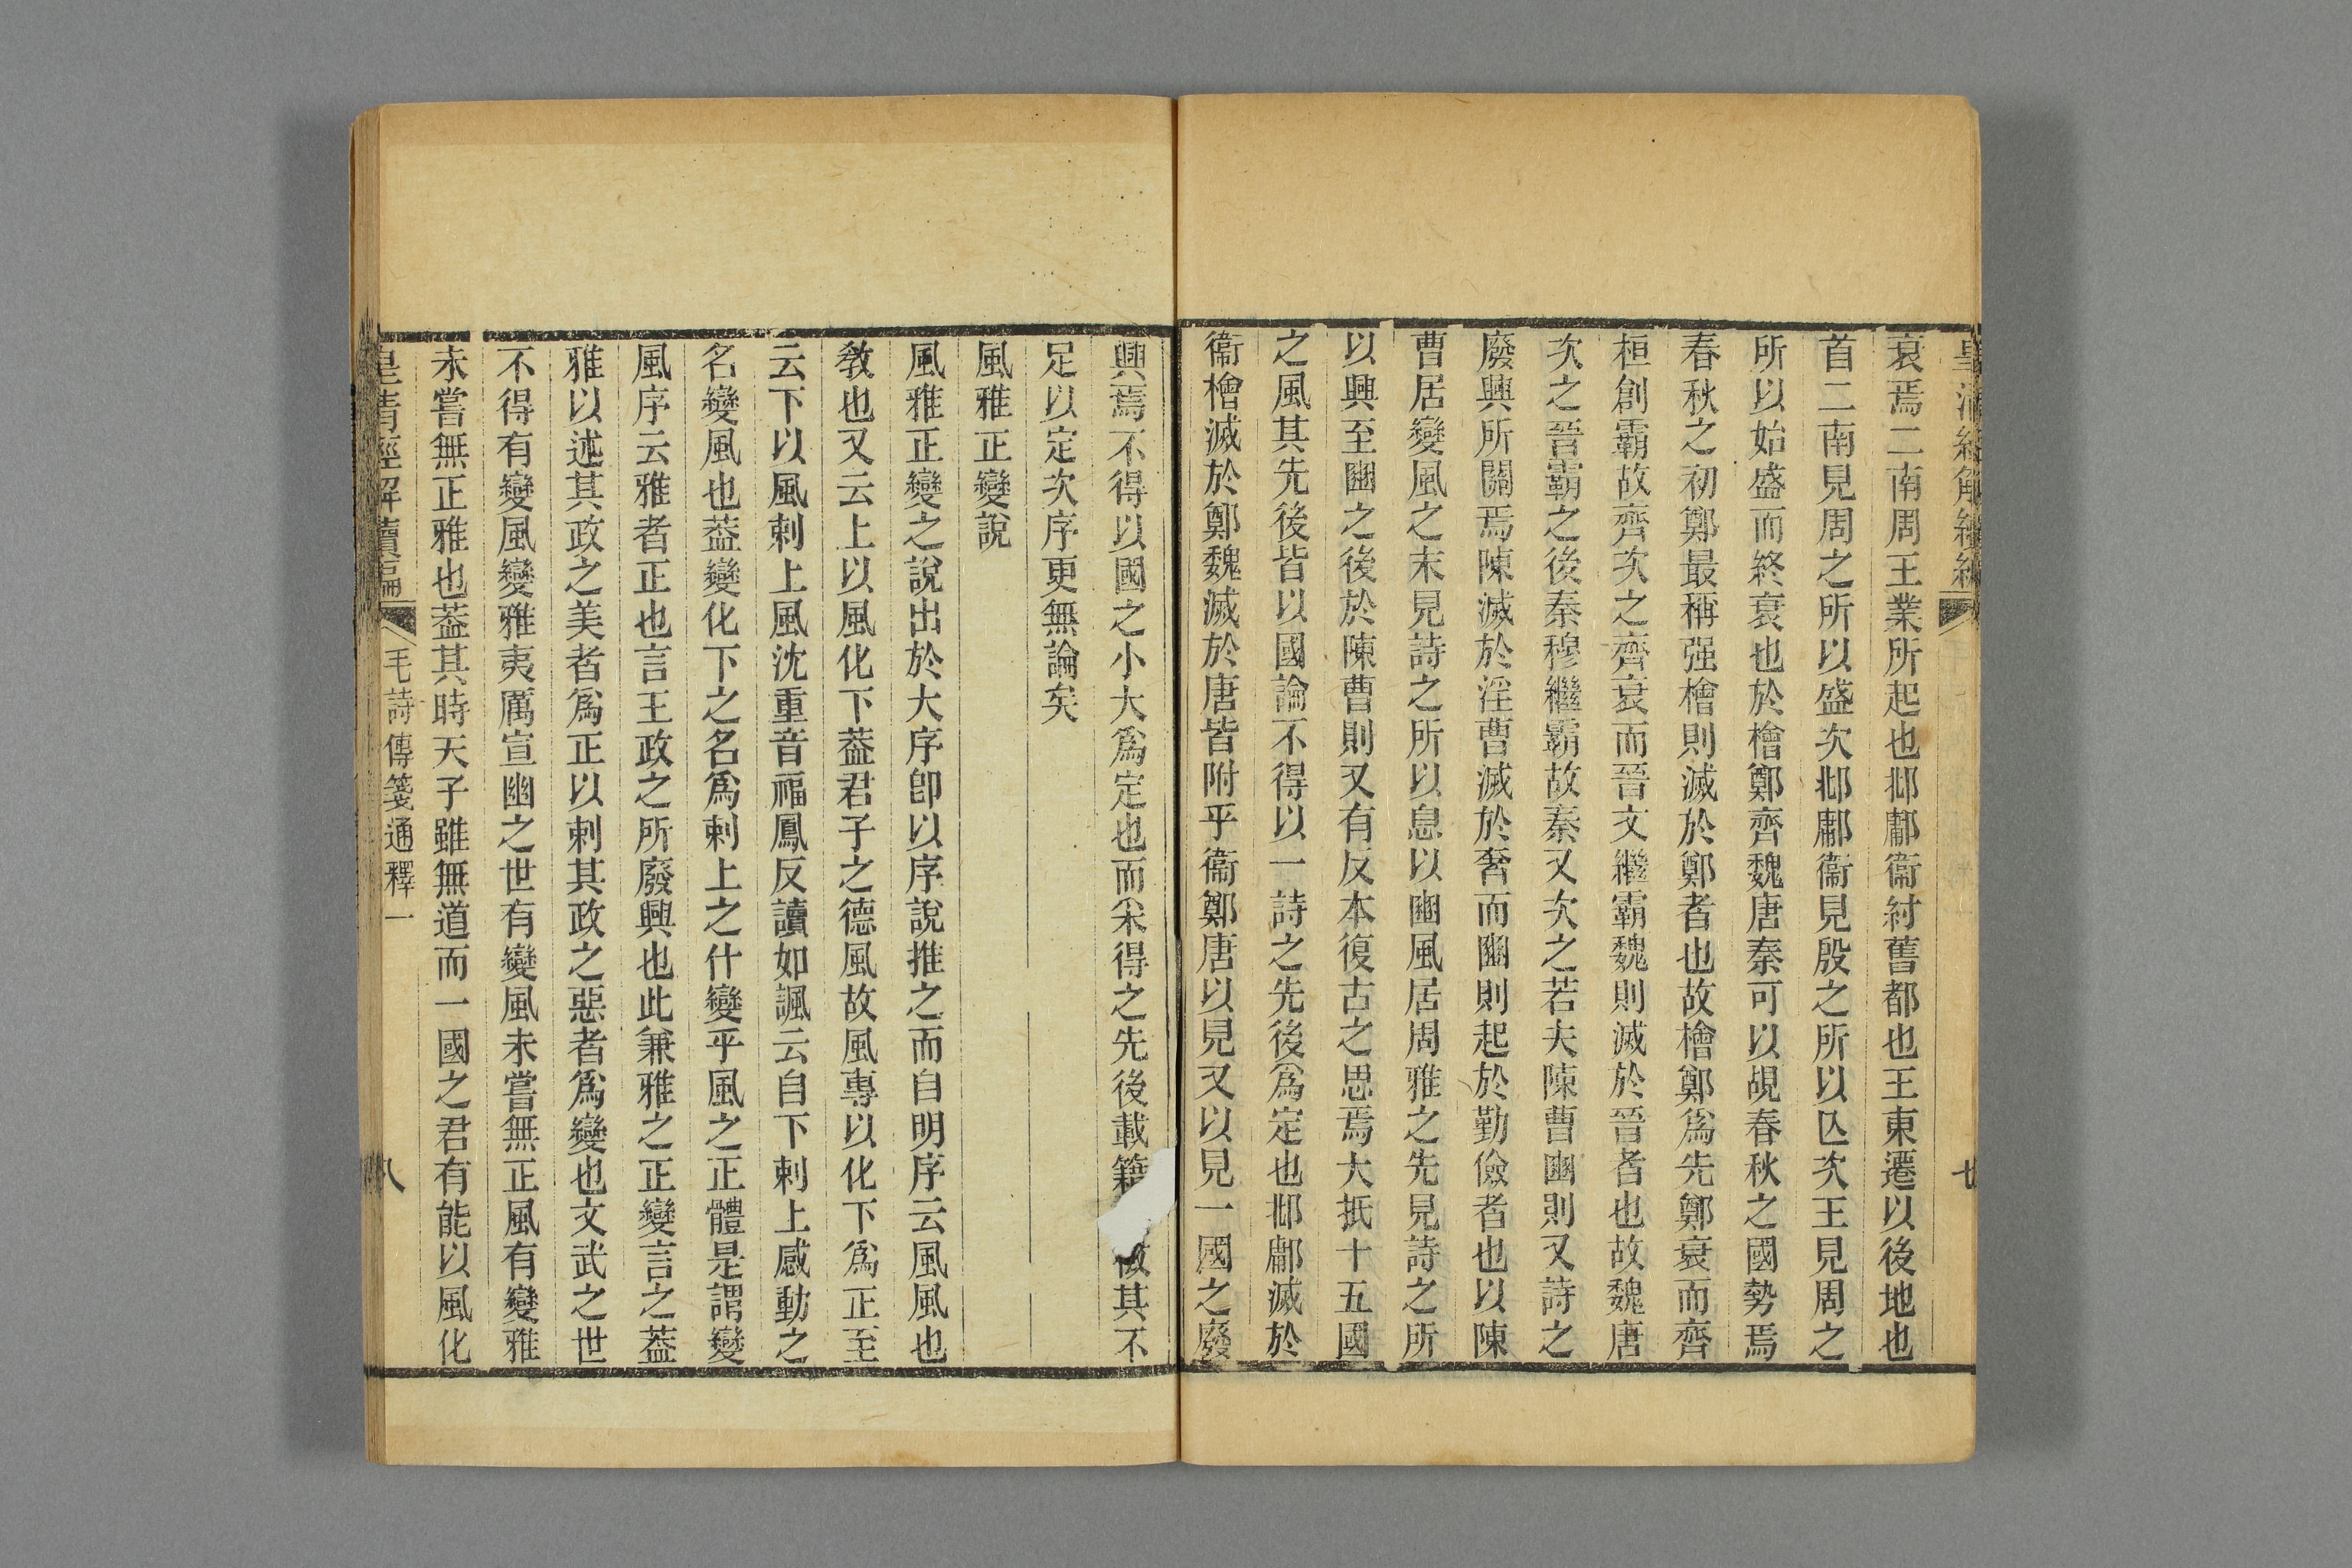 皇清經解續編
七
衰焉二南周王業所起也邶鄘衞紂舊都也王東遷以後地也
首二南見周之所以盛次邶鄘衞見殷之所以亾次王見周之
所以始盛而終衰也於檜鄭齊魏唐秦可以覘春秋之國勢焉
春秋之初鄭最稱强檜則滅於鄭者也故檜鄭爲先鄭衰而齊
桓創霸故齊次之齊衰而晉文繼霸魏則滅於晉者也故魏唐
次之晉霸之後秦穆繼霸故秦又次之若夫陳曹豳則又詩之
廢興所關焉陳滅於淫曹滅於奢而豳則起於勤儉者也以陳
曹居變風之末見詩之所以息以豳風居周雅之先見詩之所
以興至豳之後於陳曹則又有反本復古之思焉大抵十五國
之風其先後皆以國論不得以一詩之先後爲定也邶鄘滅於
衞檜滅於鄭魏滅於唐皆附乎衞鄭唐以見又以見一國之廢
興焉不得以國之小大爲定也而采得之先後載籍其不
足以定次序更無論矣
風雅正變說
風雅正變之說出於大序卽以序說推之而自明序云風風也
敎也又云上以風化下葢君子之德風故風專以化下爲正至
云下以風刺上風沈重音福鳳反讀如諷云自下刺上感動之
名變風也葢變化下之名爲刺上之什變乎風之正體是謂變
風序云雅者正也言王政之所廢興也此兼雅之正變言之葢
雅以述其政之美者爲正以刺其政之惡者爲變也文武之世
不得有變風變雅夷厲宣幽之世有變風未嘗無正風有變雅
未嘗無正雅也葢其時天子雖無道而一國之君有能以風化
皇淸經解續編
毛詩傳箋通釋一
八